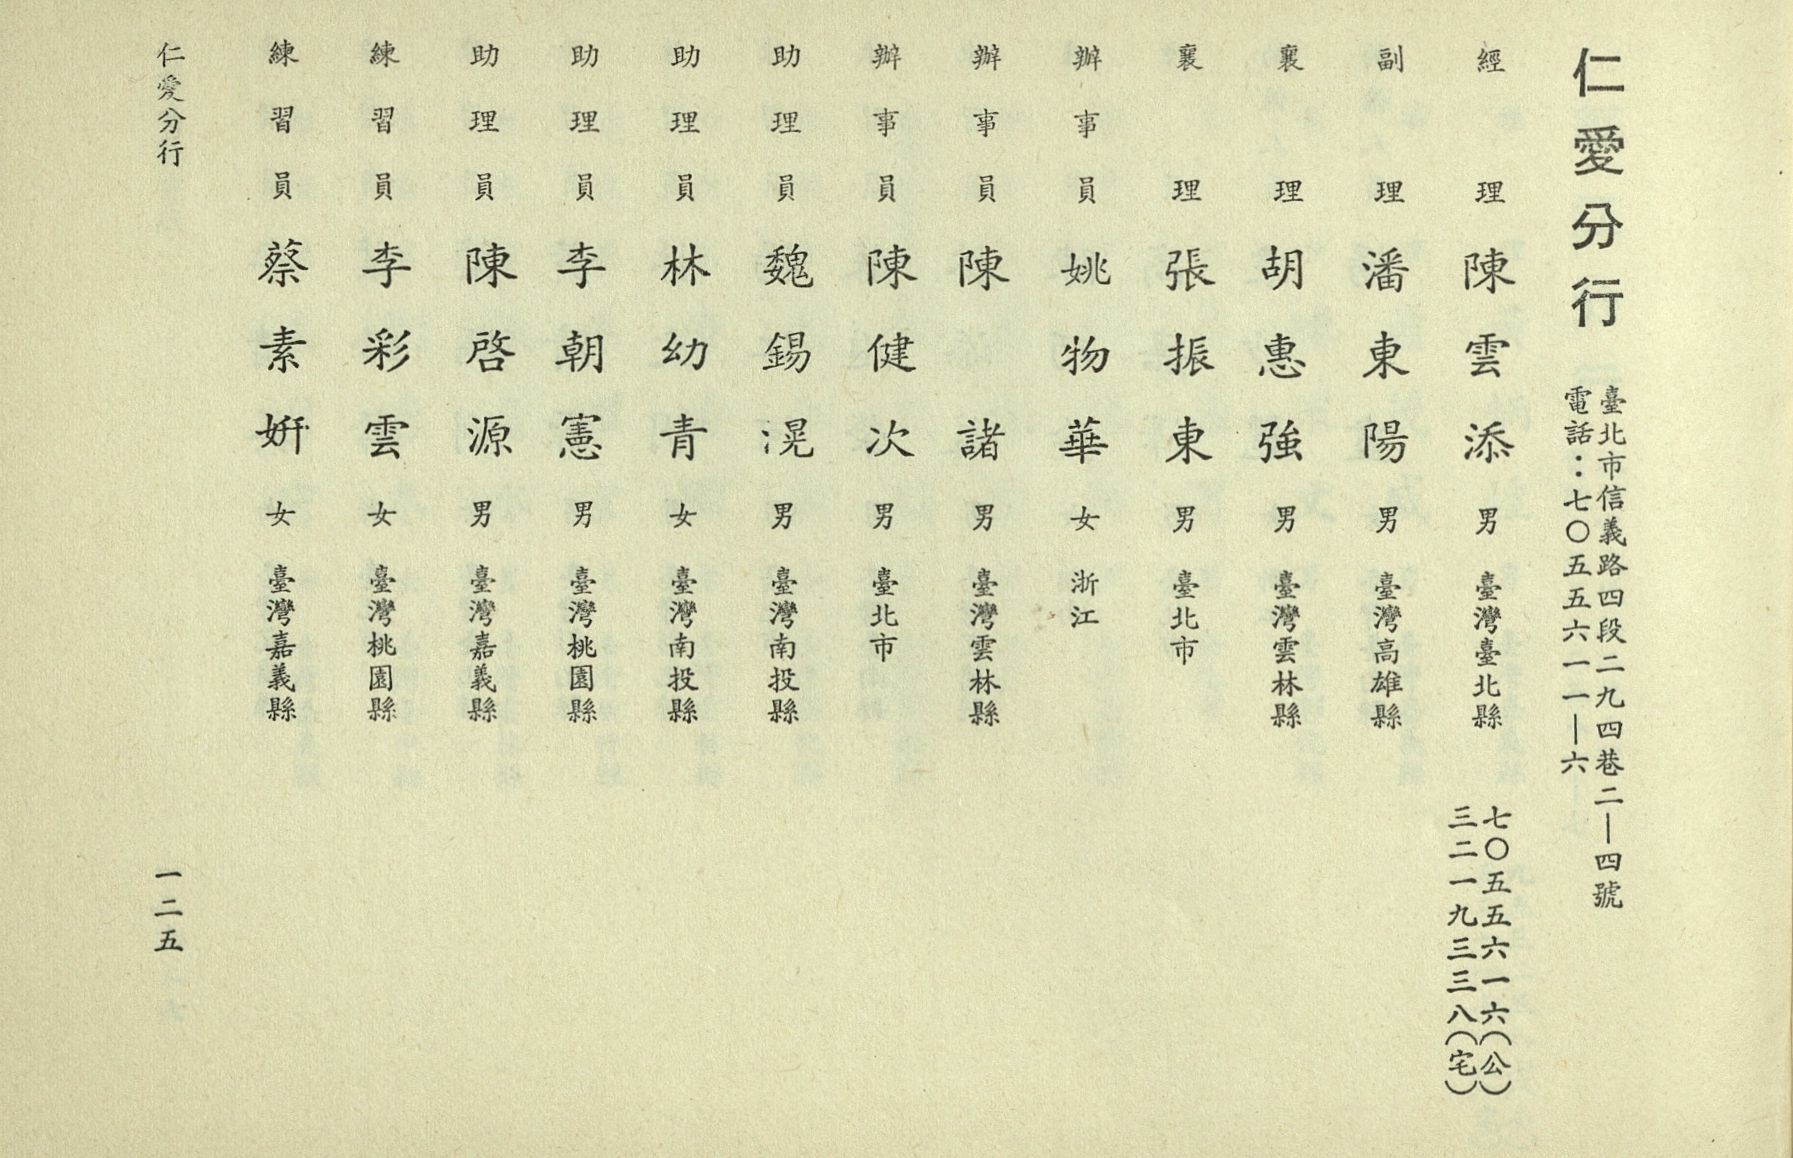 仁愛分行
臺北市信義路四段二九四巷二—四號
電話：七〇五五六一一—六
經理 陳雲添 男 臺灣臺北縣 七〇五五六一六(公)
三二一九三三八(宅)
副理 潘東陽 男 臺灣高雄縣
襄理 胡惠強 男 臺灣雲林縣
襄理 張振東 男 臺北市
辦事員 姚物華 女 浙江
辦事員 陳諸 男 臺灣雲林縣
辦事員 陳健次 男 臺北市
助理員 魏錫滉 男 臺灣南投縣
助理員 林幼青 女 臺灣南投縣
助理員 李朝憲 男 臺灣桃園縣
助理員 陳啓源 男 臺灣嘉義縣
練習員 李彩雲 女 臺灣桃園縣
練習員 蔡素姸 女 臺灣嘉義縣
仁愛分行
一二五